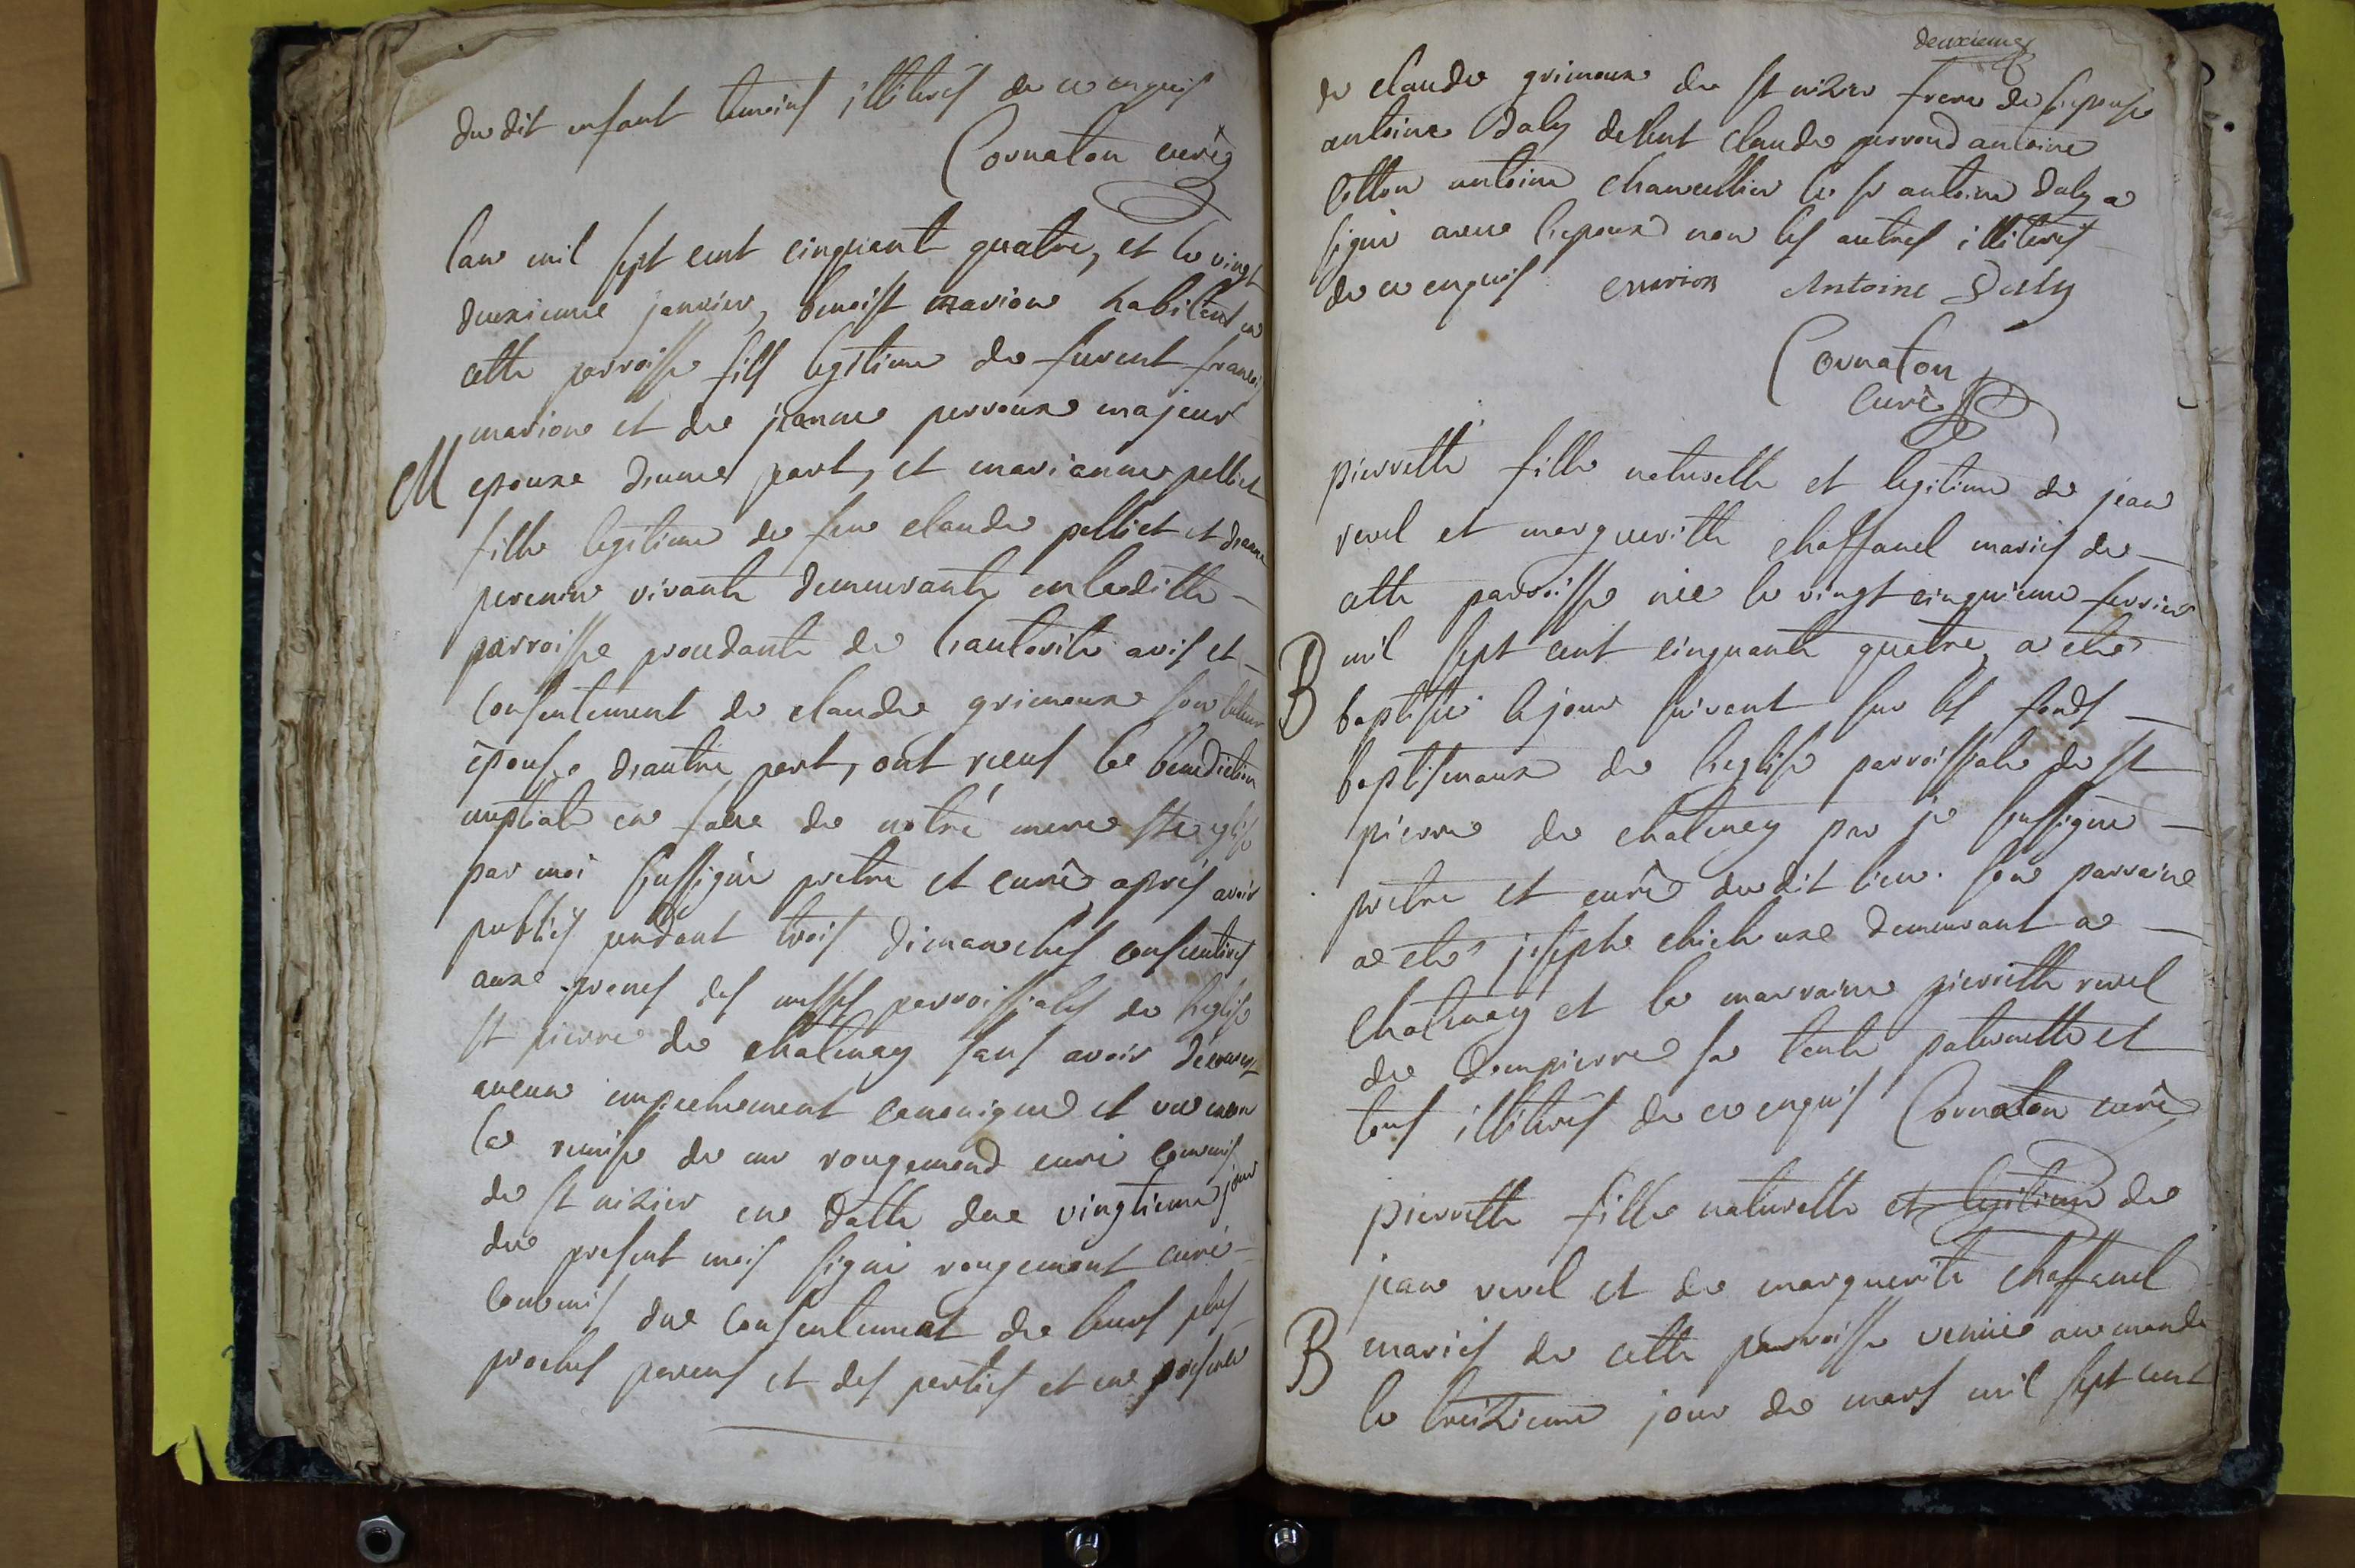 du dit enfant temoins illiterés de ce enquis
Cornaton curé
lan mil sept cent cinquant quatre, et le vingt
deuxieme janvier, benoist marion habitent en
cette parroisse fils legitime de furent francois
marion et de jeanne perroux majeur
M
epoux dune part, et marianne pelliet
fille legitime de feu claude pelliet et dianne
perenin vivante demeurante en laditte
parroisse procedante de lautorité avis et
consentement de claude grimoux son tuteur
épouse d'autre part, ont reçus la benediction
nuptiale en face de notre mere ste eglise
par moi soussigné pretre et curé, apres avoir
publiés pendant trois dimanches consecutives
aux prones des messes parroissiales de leglise
st pierre de chatenay sans avoir découvert
aucun empechement canonique et vu
la remise de mr rougemond curé commis
de st nizier en datte du vingtieme jour
du present mois signé rougemont curé
commis du consentement de leurs plus
proches parens et des parties et en presence
deuxieme
de claude grimoux de st nizier frere de lepouse
antoine daly debent claude perroud antoine
cotton antoine chancellier le sr antoine daly a
signé avec lepoux non les autres illiterés
de ce enquis marion Antoine Dely
Cornaton
curé
pierrette fille naturelle et legitime de jean
revel et margueritte chaffanel mariés de
cette parroisse née le vingt cinquieme fevrier
B
mil sept cent cinquante quatre a eté
baptisée le jour suivant sur les fonds
baptismaux de leglise parroissiale de st
pierre de chatenay par je soussigné
pretre et curé du dit lieu. son parrain
a eté joseph chicheux demeurant a
chatenay et la marraine pierrette revel
de dompierre sa tente paternelle et
tous illiterés de ce enquis Cornaton curé
pierrette fille naturelle et legitime de
jean revel et de marguerite chaffanel
B
mariés de cette parroisse venüe au monde
le treizieme jour de mars mil sept cent